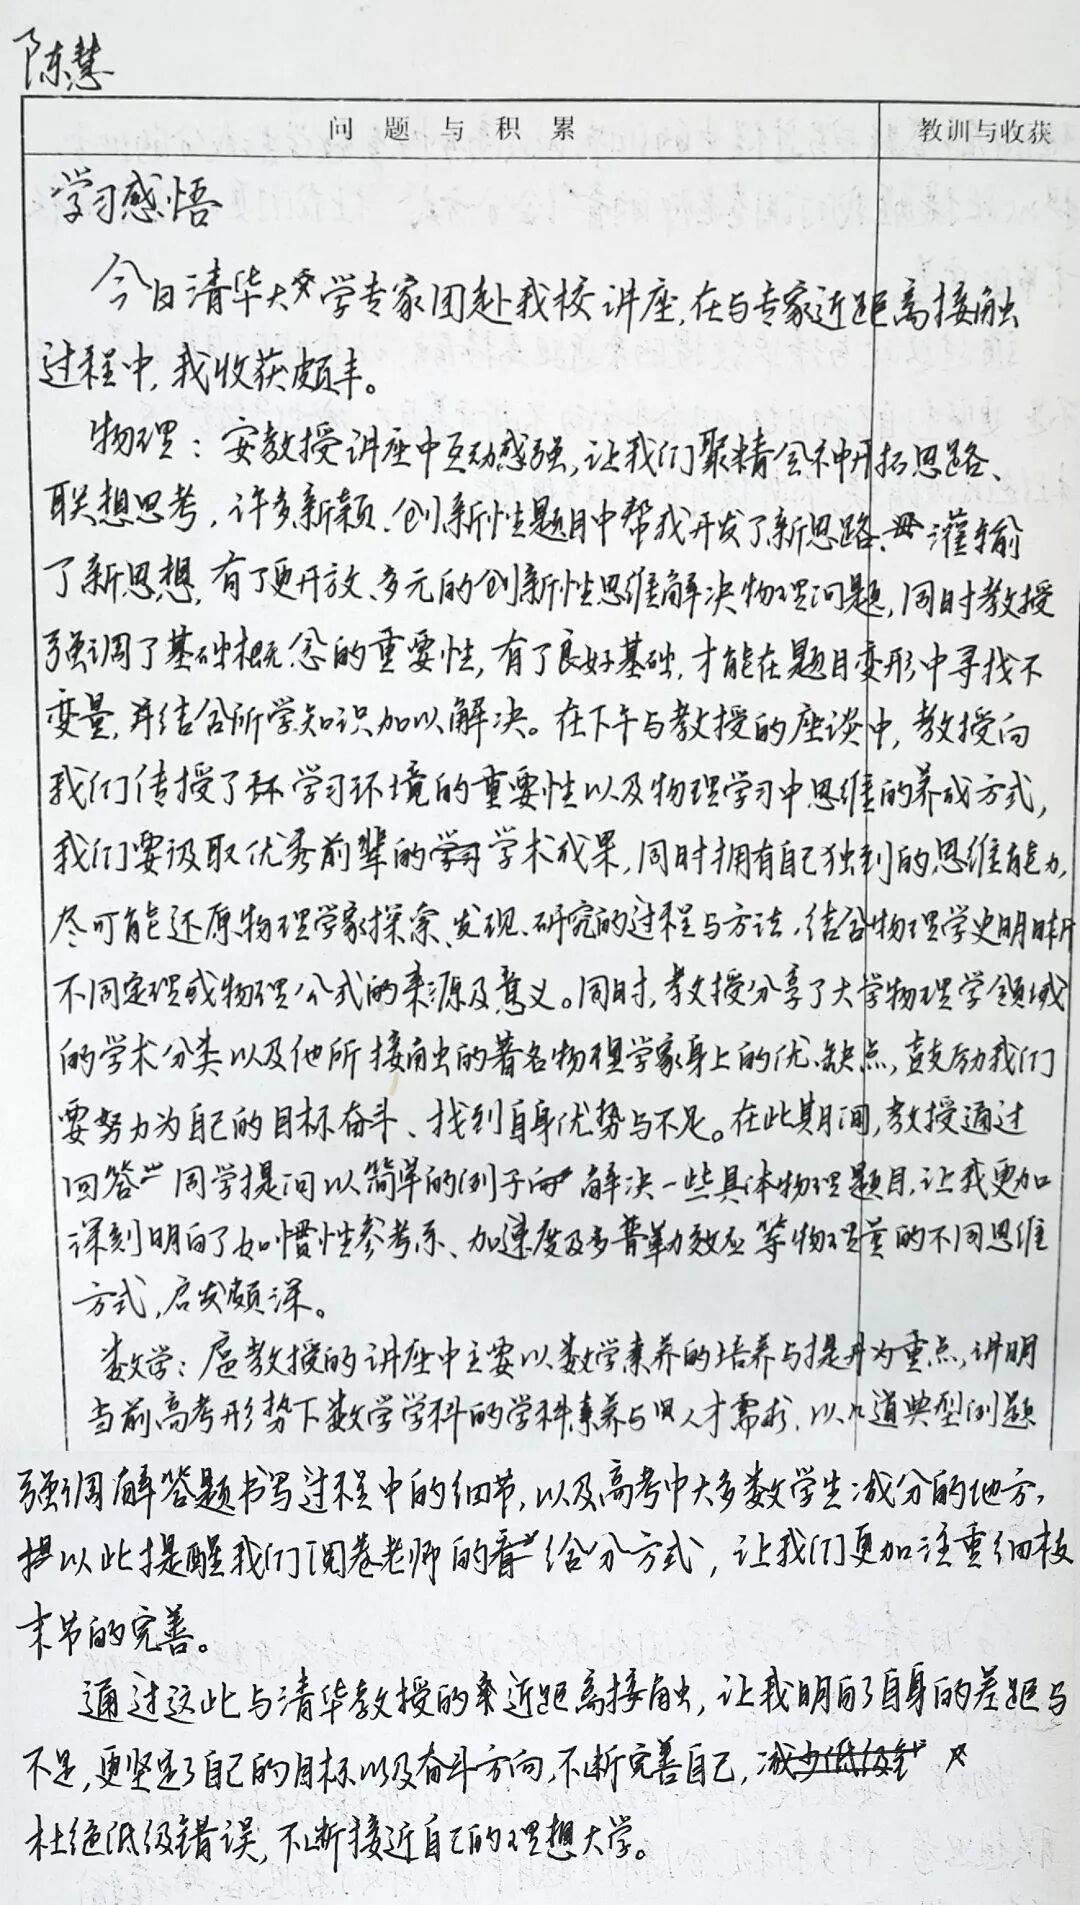 陈慧
问题与积累 教训与收获
学习感悟
今日清华大学专家团赴我校讲座,在与专家近距离接触
过程中,我收获颇丰。
物理:安教授讲座中互动感强,让我们聚精会神开拓思路、
联想思考,许多新颖、创新性题目中帮我开发了新思路、灌输
了新思想,有了更开放、多元的创新性思维解决物理问题,同时教授
强调了基础概念的重要性,有了良好基础,才能在题目变形中寻找不
变量,并结合所学知识加以解决。在下午与教授的座谈中,教授向
我们传授了学习环境的重要性以及物理学习中思维的养成方式,
我们要汲取优秀前辈的学术成果,同时拥有自己独到的思维能力,
尽可能还原物理学家探索、发现、研究的过程与方法,结合物理学史明晰
不同定理或物理公式的来源及意义。同时,教授分享了大学物理学领域
的学术分类以及他所接触的著名物理学家身上的优、缺点,鼓励我们
要努力为自己的目标奋斗、找到自身优势与不足。在此期间,教授通过
回答同学提问以简单的例子解决一些具体物理题目,让我更加
深刻明白了如惯性参考系、加速度及多普勒效应等物理量的不同思维
方式,启发颇深。
数学:扈教授的讲座中主要以数学素养的培养与提升为重点,讲明
当前高考形势下数学学科的学科素养与人才需求,以几道典型例题
强调解答题书写过程中的细节,以及高考中大多数学生减分的地方,
以此提醒我们阅卷老师的给分方式,让我们更加注重细枝
末节的完善。
通过这此与清华教授的亲近距离接触,让我明白了自身的差距与
不足,更坚定了自己的目标以及奋斗方向,不断完善自己,
杜绝低级错误,不断接近自己的理想大学。